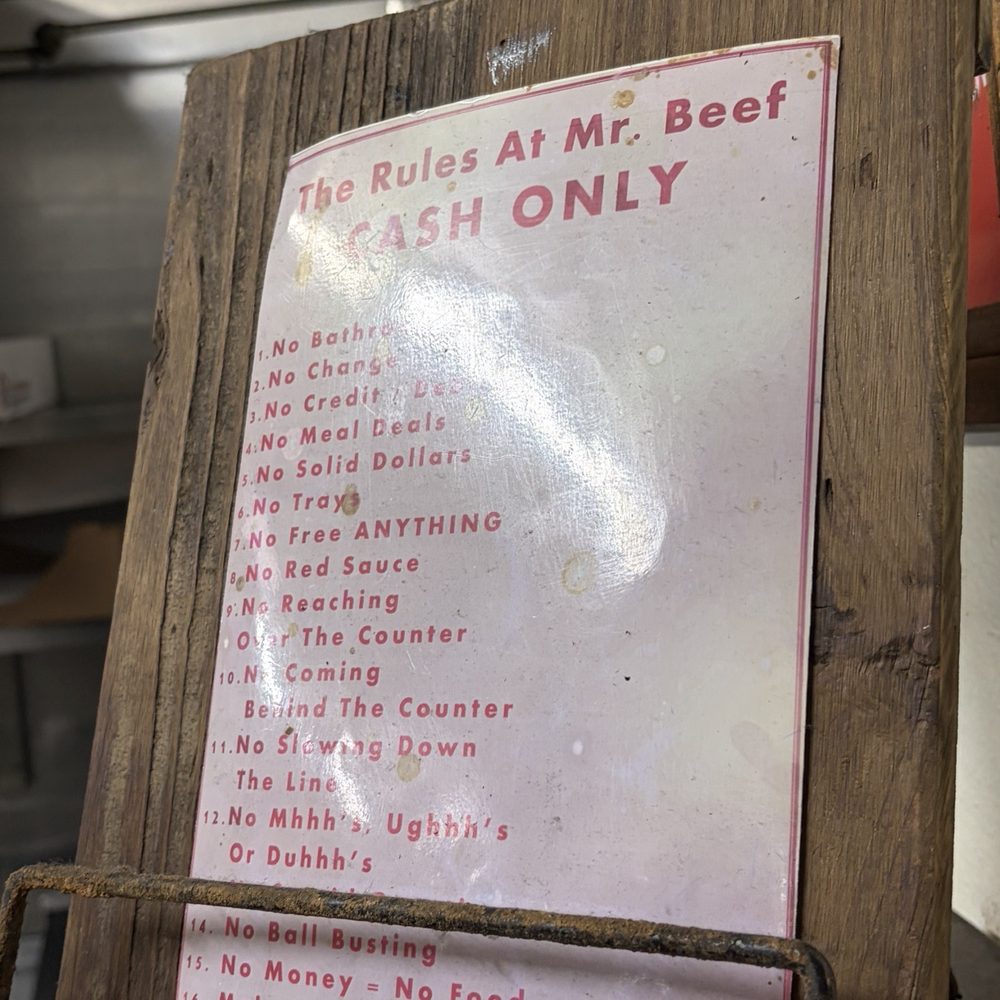 The Rules At Mr. Beef
CASH ONLY
1.No
2.No Change
3.No Credit /
4.No Meal Deals
5.No Solid Dollars
6.No Trays
7.No Free ANYTHING
8.No Red Sauce
9.No Reaching
Over The Counter
10.No Coming
Behind The Counter
11.No Slowing Down
The Line
12.No Mhhh's, Ughhh's
Or Duhhh's
14. No Ball Busting
15. No Money = No Food